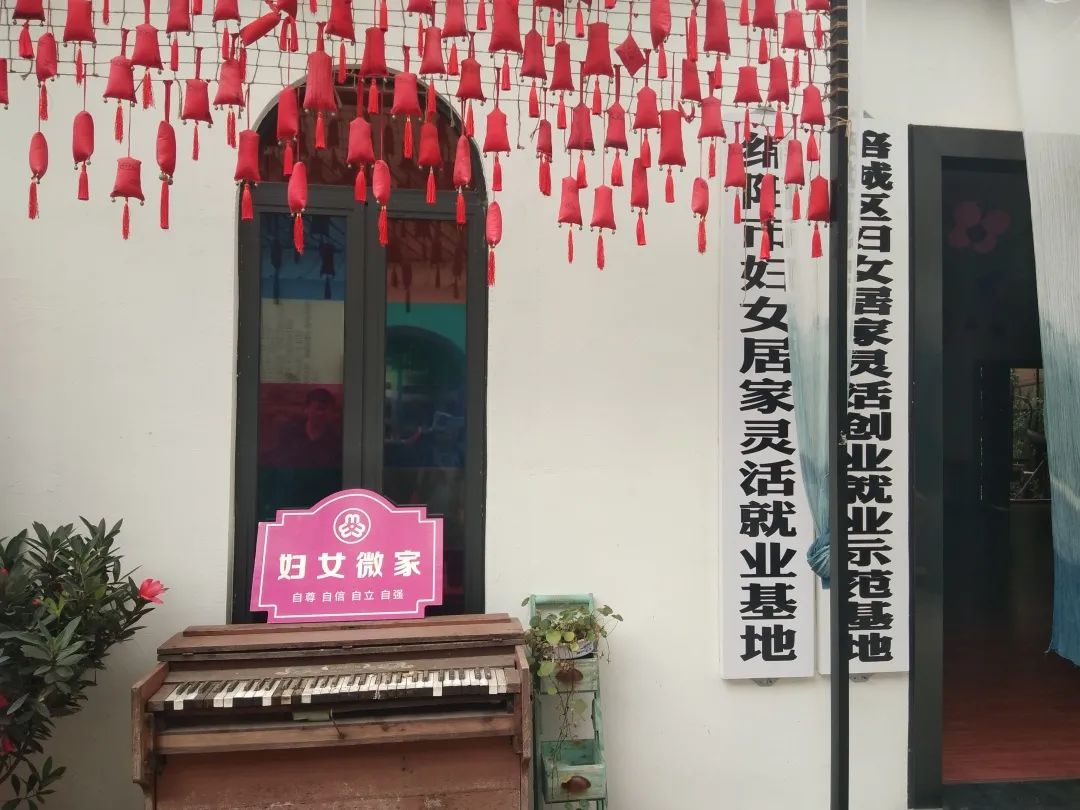 妇女微家
自尊 自信 自立 自强
绵阳市妇女居家灵活就业基地
涪城区妇女居家灵活创业就业示范基地